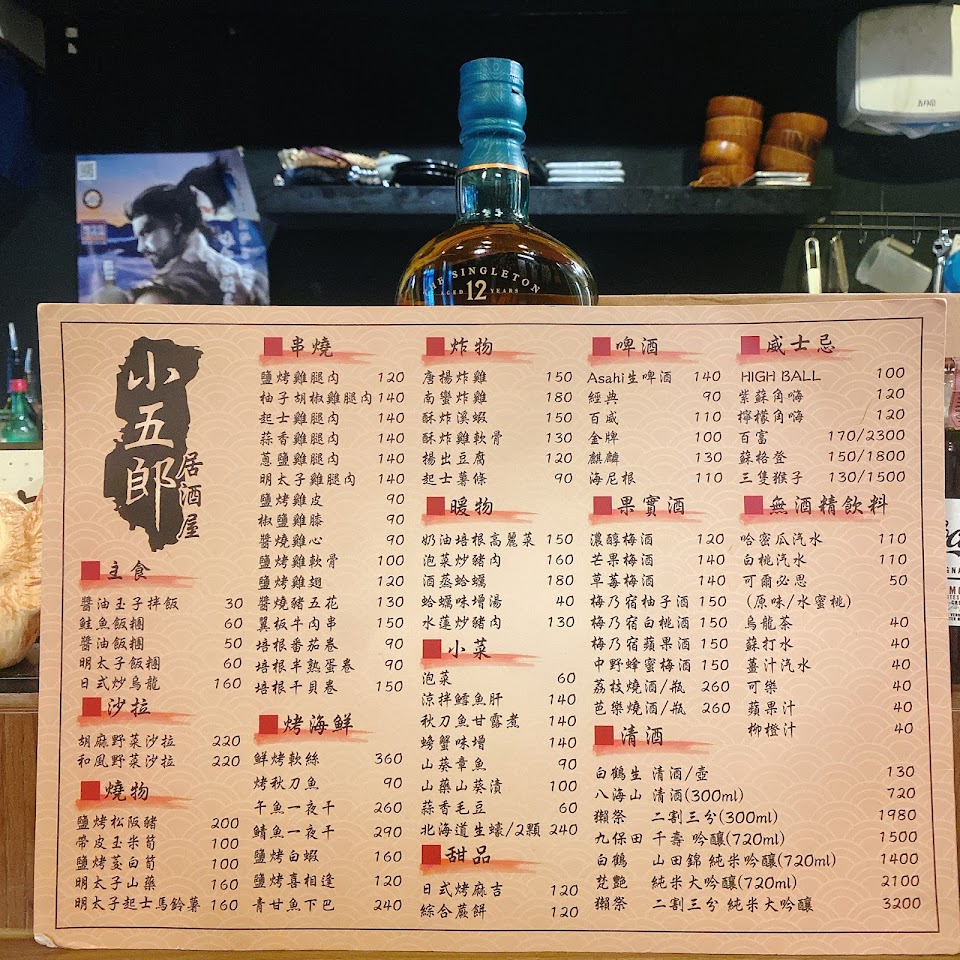 THE SINGLETON
AGED 12 YEARS
小五郎
居酒屋
主食
醬油玉子拌飯 30
鮭魚飯糰 60
醬油飯糰 50
明太子飯糰 60
日式炒烏龍 160
沙拉
胡麻野菜沙拉 220
和風野菜沙拉 220
燒物
鹽烤松阪豬 200
帶皮玉米筍 100
鹽烤茭白筍 100
明太子山藥 160
明太子起士馬鈴薯 160
串燒
鹽烤雞腿肉 120
柚子胡椒雞腿肉 140
起士雞腿肉 140
蒜香雞腿肉 140
蔥鹽雞腿肉 140
明太子雞腿肉 140
鹽烤雞皮 90
椒鹽雞膝 90
醬燒雞心 90
鹽烤雞軟骨 100
鹽烤雞翅 120
醬燒豬五花 130
翼板牛肉串 150
培根番茄卷 90
培根半熟蛋卷 90
培根干貝卷 150
烤海鮮
鮮烤軟絲 360
烤秋刀魚 90
午魚一夜干 260
鯖魚一夜干 290
鹽烤白蝦 160
鹽烤喜相逢 120
青甘魚下巴 240
炸物
唐揚炸雞 150
南蠻炸雞 180
酥炸溪蝦 150
酥炸雞軟骨 130
揚出豆腐 120
起士薯條 90
暖物
奶油培根高麗菜 150
泡菜炒豬肉 160
酒蒸蛤蠣 180
蛤蠣味增湯 40
水蓮炒豬肉 130
小菜
泡菜 60
涼拌鱈魚肝 140
秋刀魚甘露煮 140
螃蟹味增 140
山葵章魚 90
山藥山葵漬 100
蒜香毛豆 60
北海道生蠔/2顆 240
甜品
日式烤麻吉 120
綜合蕨餅 120
啤酒
Asahi生啤酒 140
經典 90
百威 110
金牌 100
麒麟 130
海尼根 110
果實酒
濃醇梅酒 120
芒果梅酒 140
草莓梅酒 140
梅乃宿柚子酒 150
梅乃宿白桃酒 150
梅乃宿蘋果酒 150
中野蜂蜜梅酒 150
荔枝燒酒/瓶 260
芭樂燒酒/瓶 260
清酒
白鶴生 清酒/壺 130
八海山 清酒(300ml) 720
獺祭 二割三分(300ml) 1980
九保田 千壽 吟釀(720ml) 1500
白鶴 山田錦 純米吟釀(720ml) 1400
梵艷 純米大吟釀(720ml) 2100
獺祭 二割三分 純米大吟釀 3200
威士忌
HIGH BALL 100
紫蘇角嗨 120
檸檬角嗨 120
百富 170/2300
蘇格登 150/1800
三隻猴子 130/1500
無酒精飲料
哈密瓜汽水 110
白桃汽水 110
可爾必思 50
(原味/水蜜桃)
烏龍茶 40
蘇打水 40
薑汁汽水 40
可樂 40
蘋果汁 40
柳橙汁 40